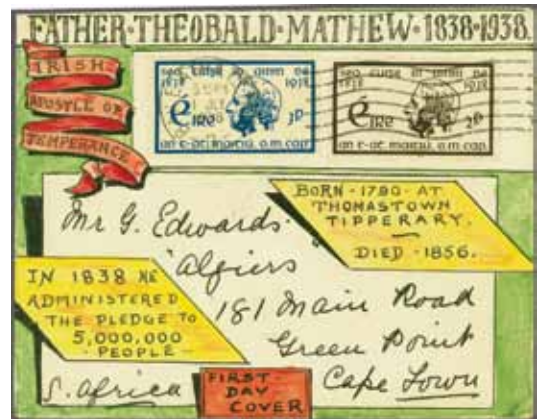 FATHER·THEOBALD·MATHEW·1838·1938.
IRISH
APOSTLE OF
TEMPERANCE
1838 1938
éire 3p
1838 1938
éire 2p
BORN·1790·AT
THOMASTOWN
TIPPERARY.
DIED·1856.
Mr G. Edwards.
"Algiers
181 Main Road
Green Point
Cape Town
S. Africa
IN 1838 HE
ADMINISTERED
THE PLEDGE TO
5,000,000
-PEOPLE-
FIRST
DAY
COVER